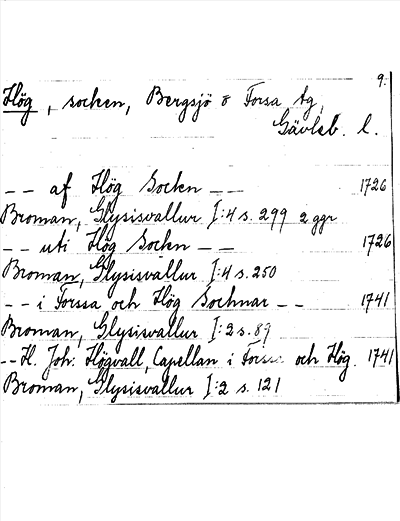 9.
Hög, socken, Bergsjö o Forsa tg,
Gävleb. l.
-- af Hög Socken -- 1726
Broman, Glysisvallur I:4 s. 299 2 ggr
-- uti Hög Socken -- 1726
Broman, Glysisvallur I:4 s. 250
-- i Forssa och Hög Sochnar -- 1741
Broman, Glysisvallur I:2 s. 89
-- H. Joh: Högvall, Capellan i Forssa och Hög. 1741
Broman, Glysisvallur I:2 s. 121